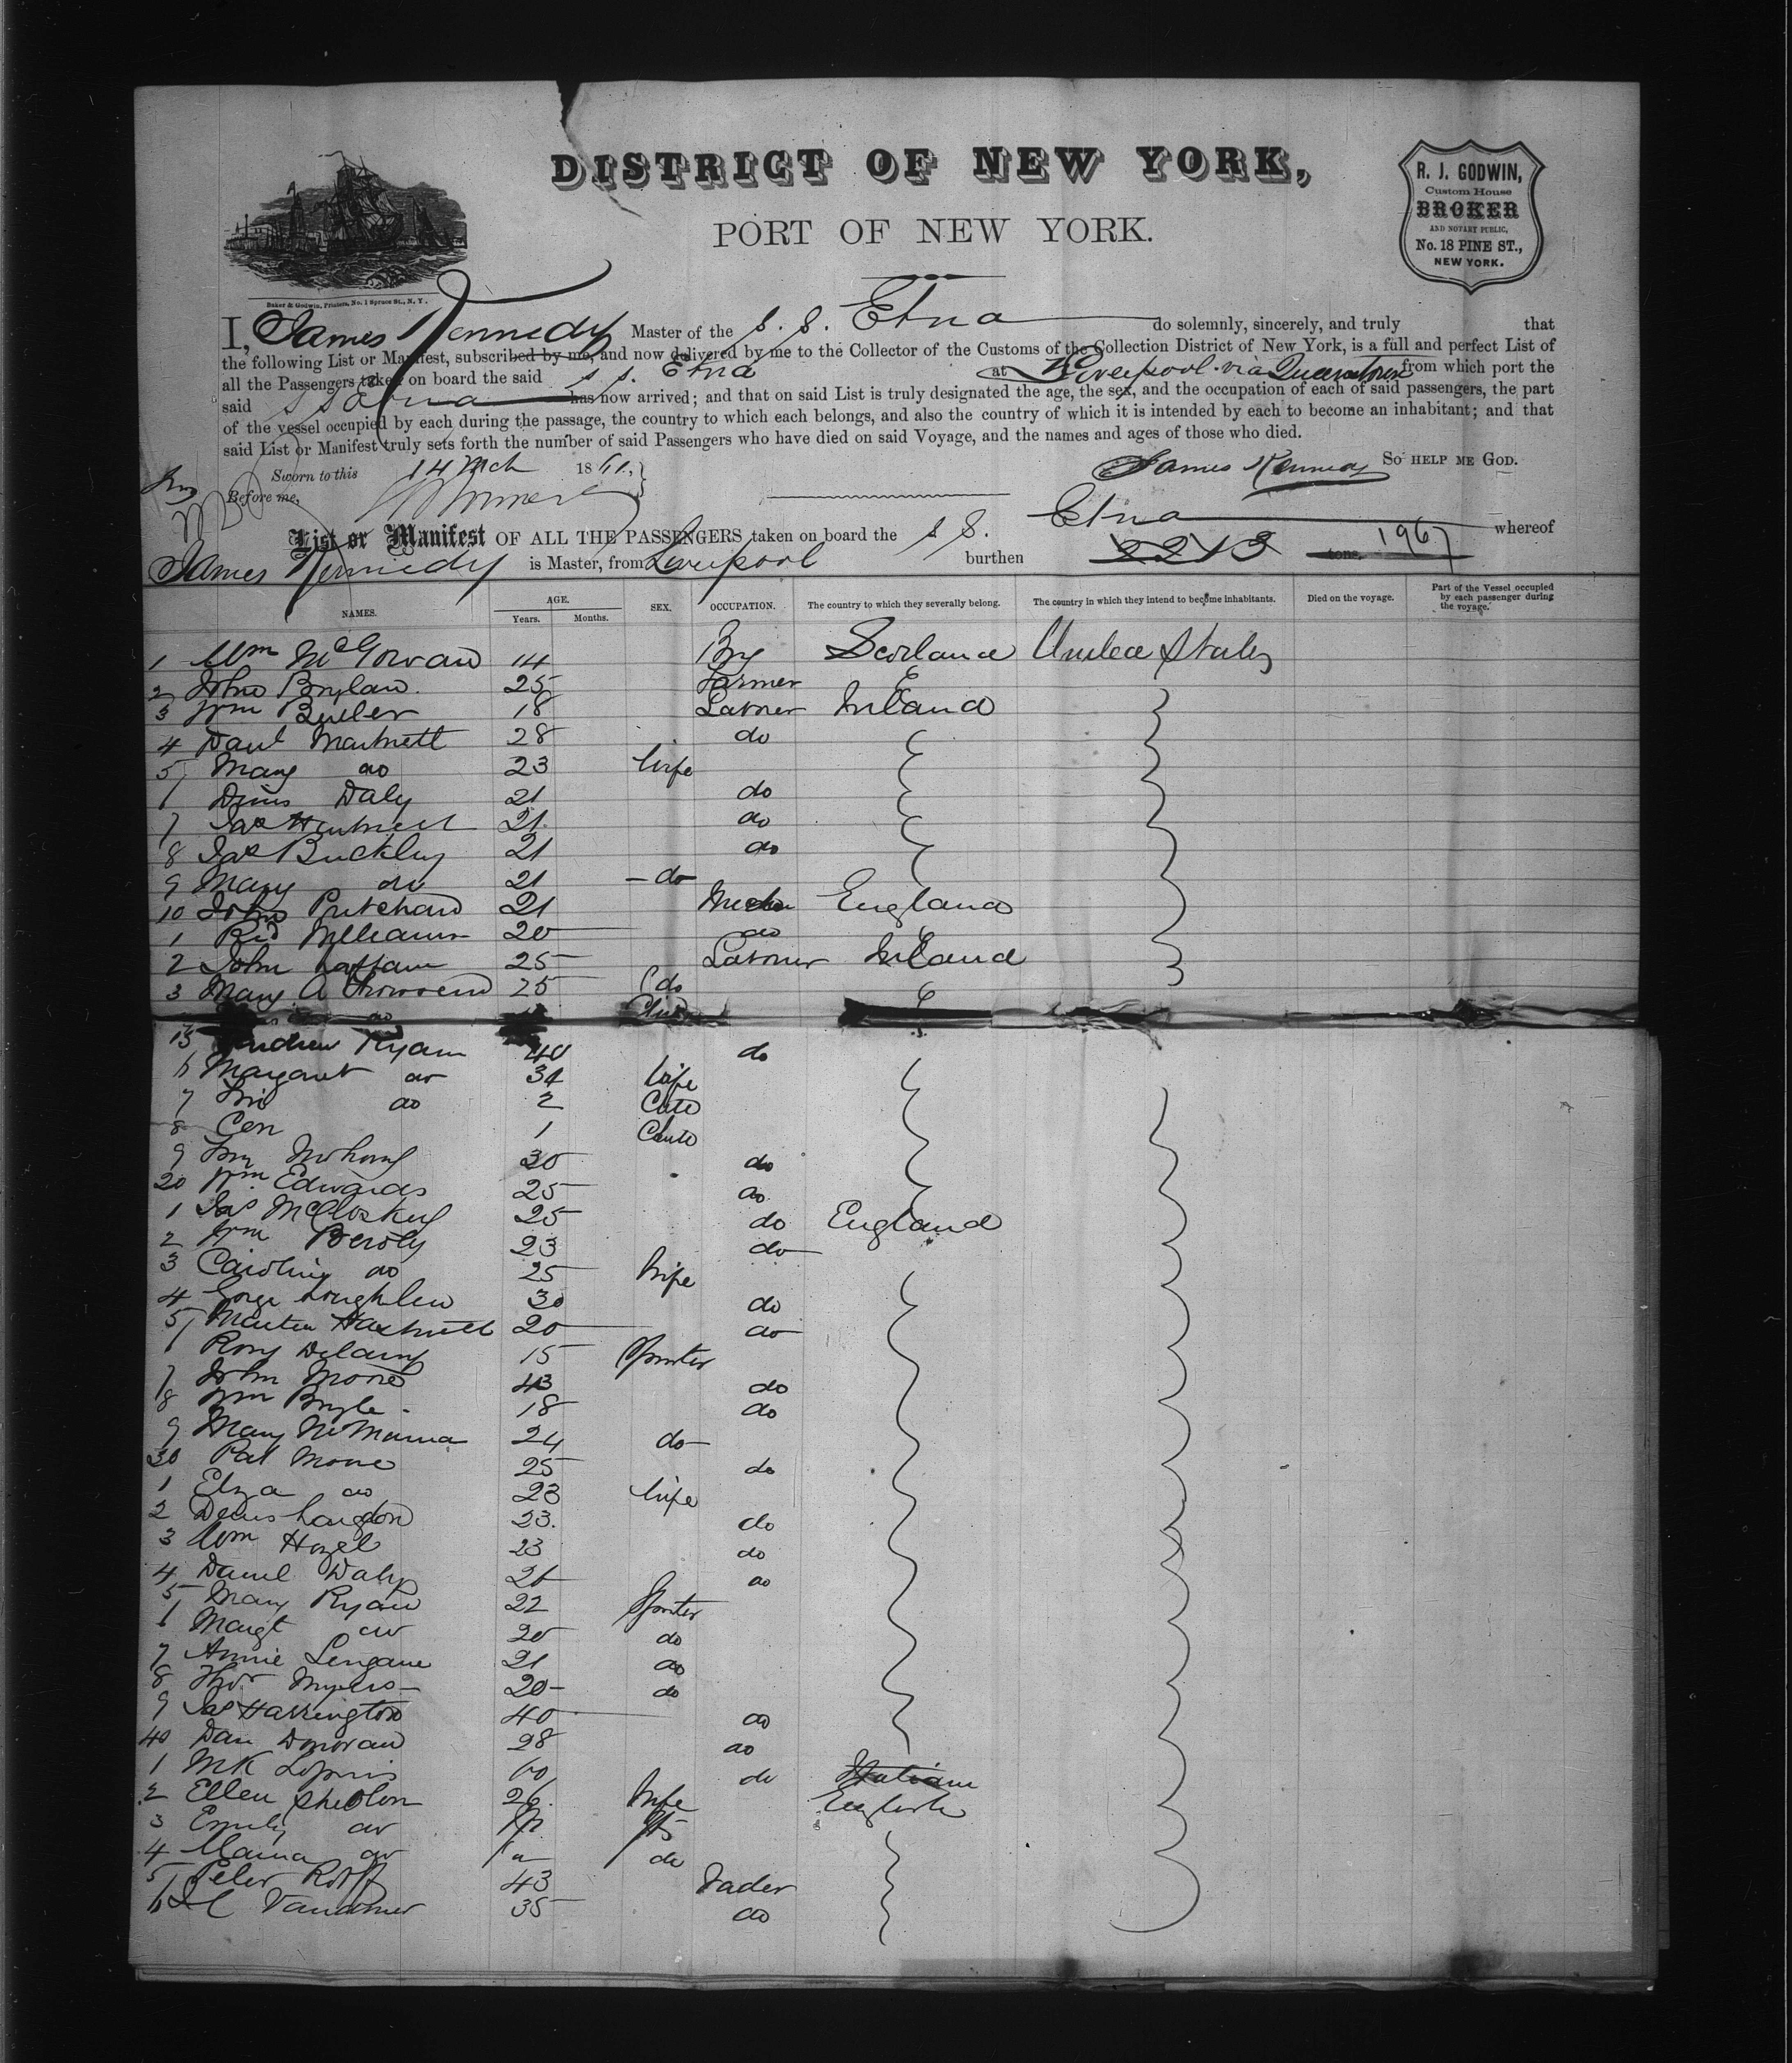 DISTRICT OF NEW YORK,
PORT OF NEW YORK.
R. J. GODWIN,
Custom House
BROKER
AND NOTARY PUBLIC,
No. 18 PINE ST.,
NEW YORK.
Baker & Godwin, Printers, No. 1 Spruce St., N. Y.
I, James Kennedy Master of the S. S. Etna do solemnly, sincerely, and truly that
the following List or Manifest, subscribed by me, and now delivered by me to the Collector of the Customs of the Collection District of New York, is a full and perfect List of
all the Passengers taken on board the said S S. Etna at Liverpool via Queenstown from which port the
said S S Etna has now arrived; and that on said List is truly designated the age, the sex, and the occupation of each of said passengers, the part
of the vessel occupied by each during the passage, the country to which each belongs, and also the country of which it is intended by each to become an inhabitant; and that
said List or Manifest truly sets forth the number of said Passengers who have died on said Voyage, and the names and ages of those who died.
Sworn to this 14 Mch 1861, James Kennedy SO HELP ME GOD.
Before me,
List or Manifest OF ALL THE PASSENGERS taken on board the S S. Etna whereof
James Kennedy is Master, from Liverpool burthen 2213 tons. 1967
NAMES. AGE. SEX. OCCUPATION. The country to which they severally belong. The country in which they intend to become inhabitants. Died on the voyage. Part of the Vessel occupied by each passenger during the voyage.
Years. Months.
1 Wm McGowan 14 Boy Scotland United States
2 John Boylan 25 Farmer
3 Wm Butler 18 Laborer Ireland
4 Danl Hartnett 28 do
5 Mary do 23 Wife
6 Denis Daly 21 do
7 Jas Hartnett 21 do
8 Jas Buckley 21 do
9 Mary do 21 do
10 John Pritchard 21 England
1 Rd Williams 20 do
2 John 25 Laborer Ireland
3 Mary A 25 do
do Child
15 Andrew Ryan 40 do
6 Margaret do 34 Wife
7 do 2 Child
8 1 Child
9 30 do
20 Wm Edwards 25 do
1 Jas McCloskey 25 do England
2 Wm 23 do
3 Caroline do 25 Wife
4 George Loughlen 30 do
5 Martin Hartnett 20 do
6 Rosy Delany 15 Spinster
7 John Moore 43 do
8 Wm Boyle 18 do
9 Mary 24 do
30 Pat Moore 25 do
1 Eliza do 23 Wife
2 Denis 23 do
3 Wm Hazel 23 do
4 Daniel Daly 21 do
5 Mary Ryan 22 Spinster
6 Margt do 20 do
7 Annie 21 do
8 Myers 20 do
9 Jas Harrington 40 do
40 Dan Donovan 28 do
1 60 do
2 Ellen Shelton 26 Wife English
3 Emily do
4 do do
5 Peter 43 Trader
6 35 do